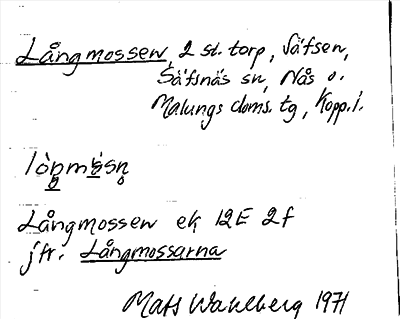 Långmossen, 2 st. torp, Säfsen,
Säfsnäs sn, Nås o.
Malungs doms. tg, Kopp. l.
lòŋmòsn̥
Långmossen ek 12E 2f
jfr. Långmossarna
Mats Wahlberg 1971